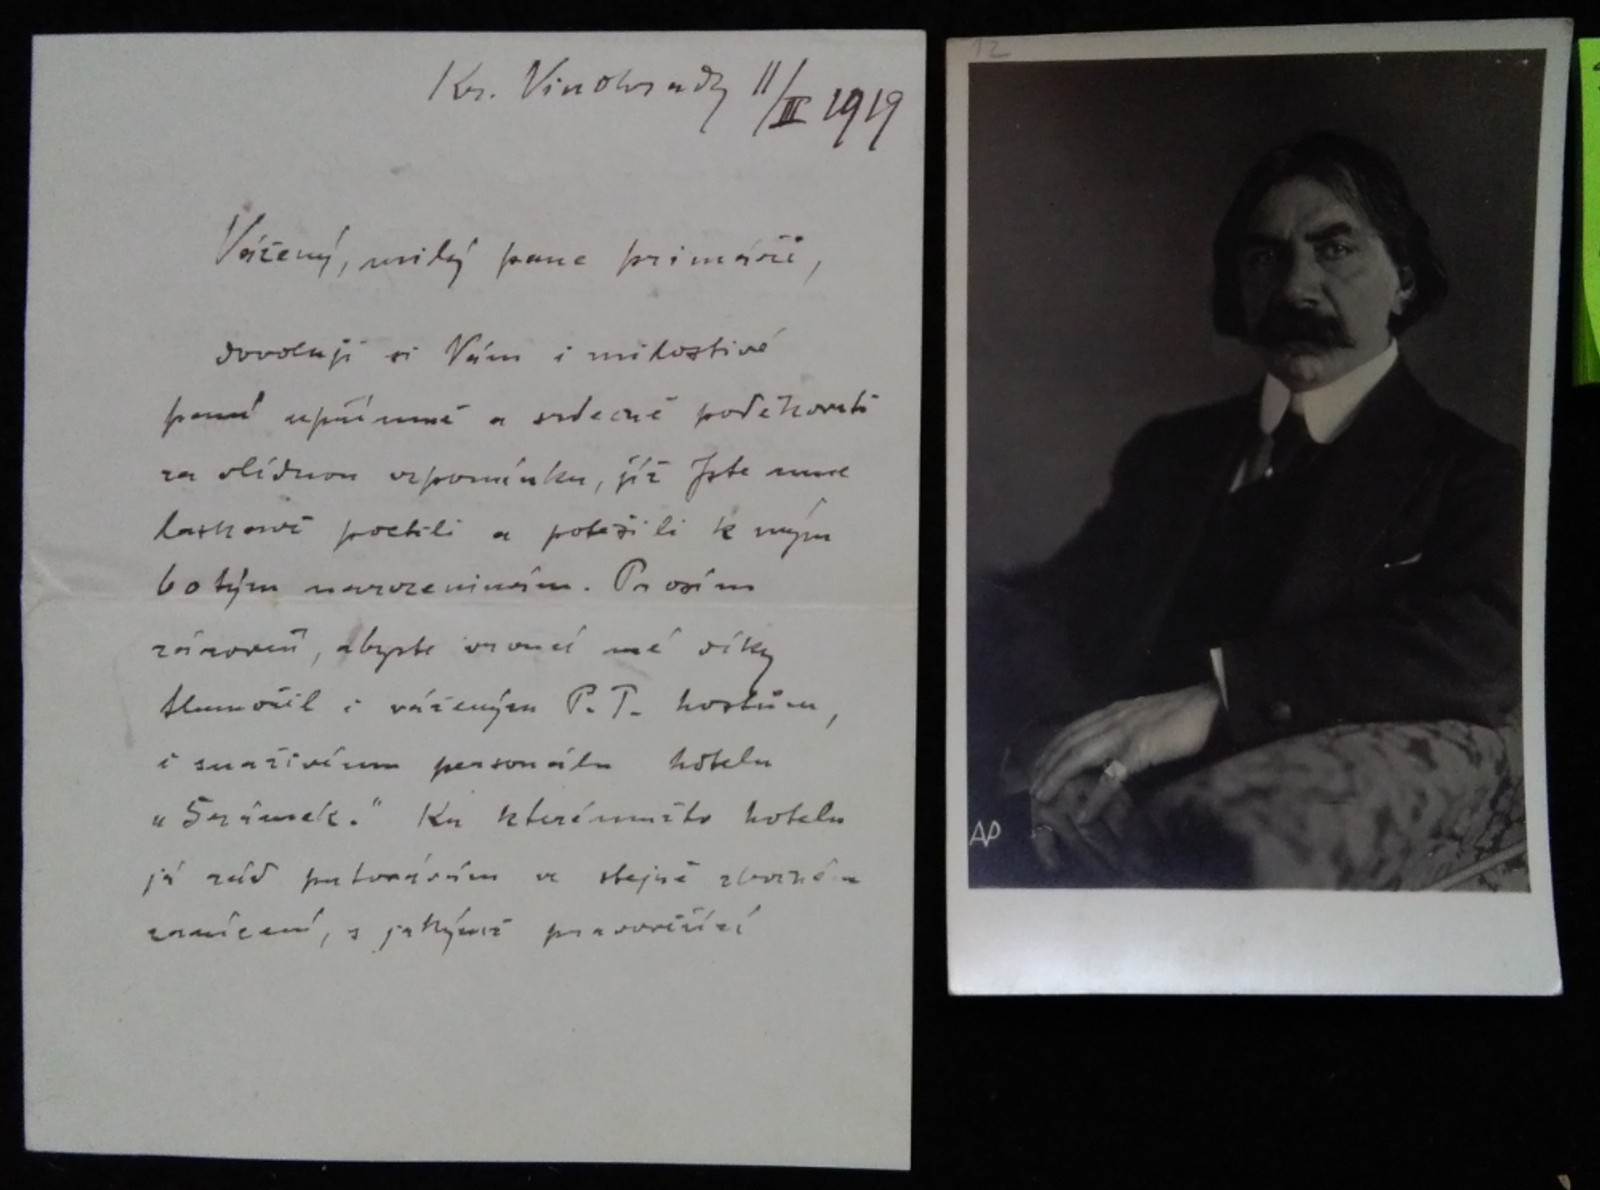 Kr. Vinohrady 11/III 1919
Vážený, milý pane primáři,
dovoluji si Vám i milostivé
paní upřímně a srdečně poděkovati
za vlídnou vzpomínku, jíž Jste mne
laskavě poctili a potěšili k mým
60tým narozeninám. Prosím
zároveň, abyste vroucí mé díky
tlumočil i váženým P. T. hostům,
i snaživému personálu hotelu
„Šrámek." Ku kterémužto hotelu
já rád putovávám ve stejně zbožném
zanícení, s jakýmž pravověřící
12
AP